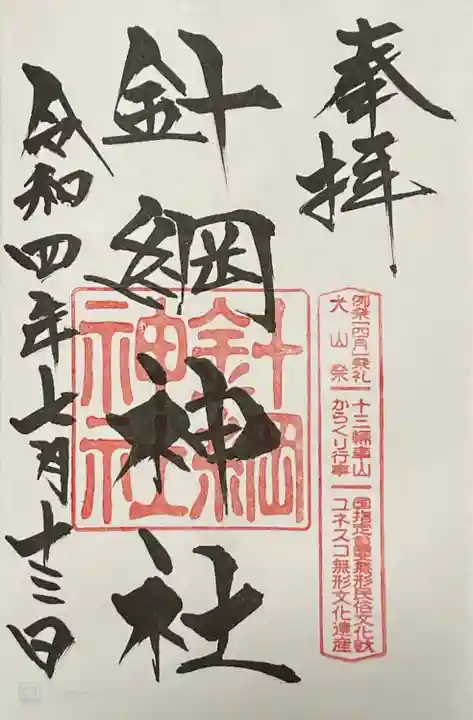 奉拝
例祭「四月」祭礼
犬山祭
十三輌車山
からくり行事
国指定重要無形民俗文化財
ユネスコ無形文化遺産
針綱神社
針綱
神社
令和四年七月十三日